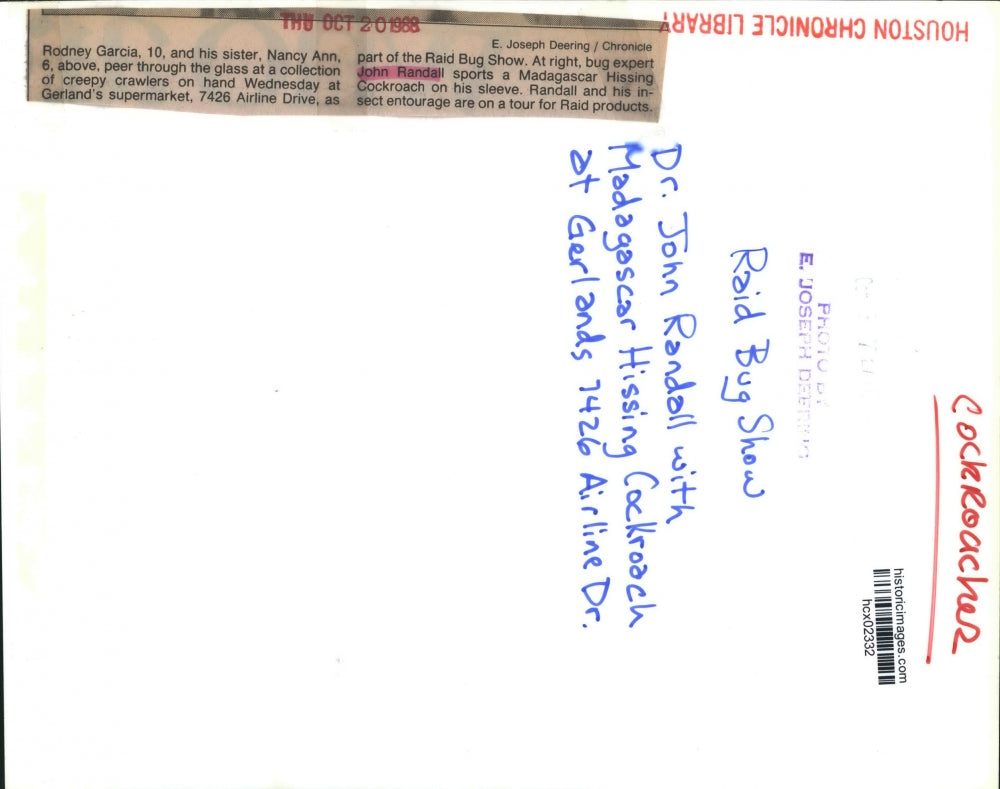 THU OCT 20 1988
HOUSTON CHRONICLE LIBRARY
Rodney Garcia, 10, and his sister, Nancy Ann,
6, above, peer through the glass at a collection
of creepy crawlers on hand Wednesday at
Gerland's supermarket, 7426 Airline Drive, as
E. Joseph Deering / Chronicle
part of the Raid Bug Show. At right, bug expert
John Randall sports a Madagascar Hissing
Cockroach on his sleeve. Randall and his in-
sect entourage are on a tour for Raid products.
Cockroaches
historicimages.com
hcx02332
PHOTO BY
E. JOSEPH DEERING
Raid Bug Show
Dr. John Randall with
Madagascar Hissing Cockroach
at Gerlands 7426 Airline Dr.